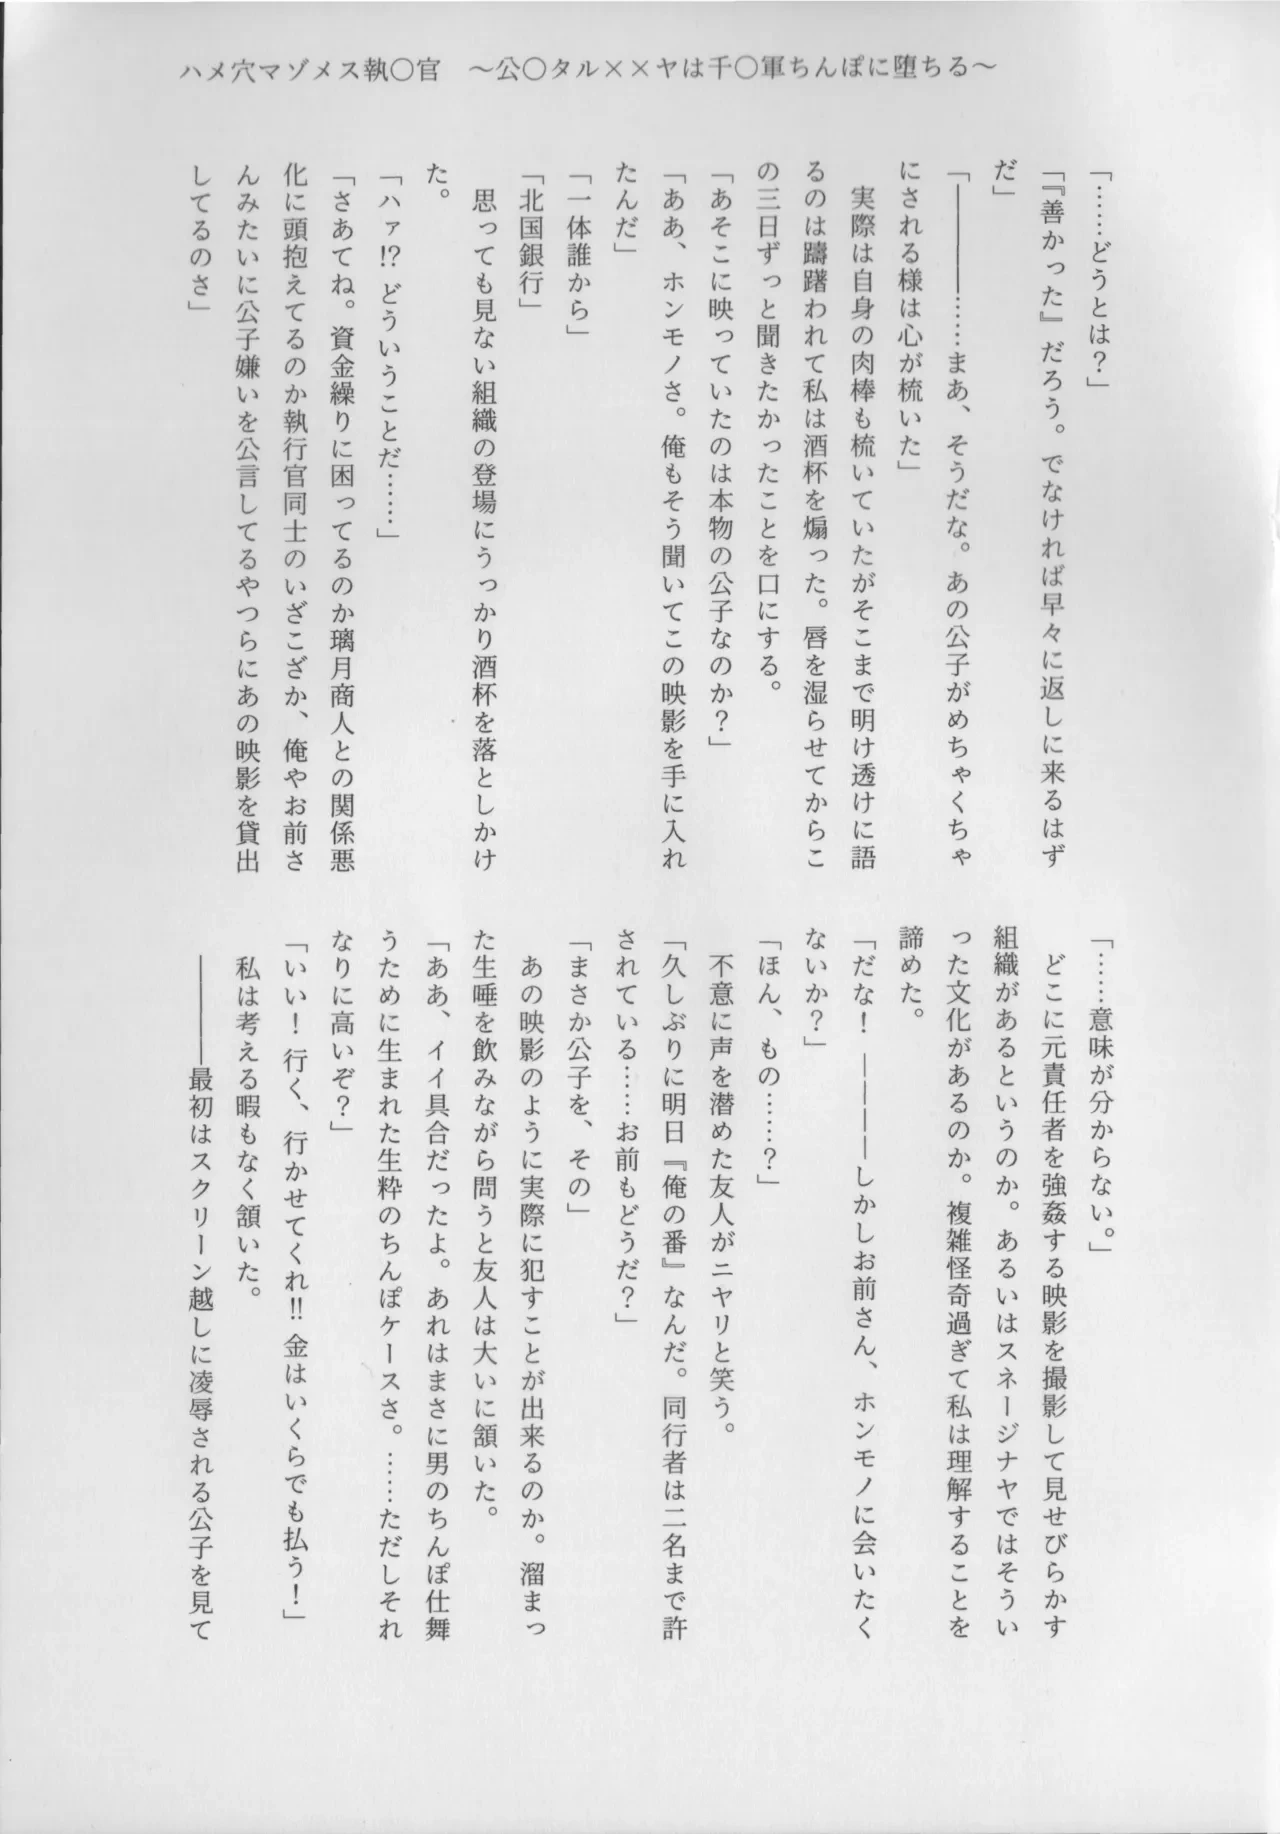 ハメ穴マゾメス執〇官　～公〇タル××ヤは千〇軍ちんぽに堕ちる～
「……どうとは？」
「『善かった』だろう。でなければ早々に返しに来るはず
だ」
「――――……まあ、そうだな。あの公子がめちゃくちゃ
にされる様は心が梳いた」
　実際は自身の肉棒も梳いていたがそこまで明け透けに語
るのは躊躇われて私は酒杯を煽った。唇を湿らせてからこ
の三日ずっと聞きたかったことを口にする。
「あそこに映っていたのは本物の公子なのか？」
「ああ、ホンモノさ。俺もそう聞いてこの映影を手に入れ
たんだ」
「一体誰から」
「北国銀行」
　思っても見ない組織の登場にうっかり酒杯を落としかけ
た。
「ハァ⁉ どういうことだ……」
「さあてね。資金繰りに困ってるのか璃月商人との関係悪
化に頭抱えてるのか執行官同士のいざこざか、俺やお前さ
んみたいに公子嫌いを公言してるやつらにあの映影を貸出
してるのさ」
「……意味が分からない。」
　どこに元責任者を強姦する映影を撮影して見せびらかす
組織があるというのか。あるいはスネージナヤではそうい
った文化があるのか。複雑怪奇過ぎて私は理解することを
諦めた。
「だな！　――――しかしお前さん、ホンモノに会いたく
ないか？」
「ほん、もの……？」
　不意に声を潜めた友人がニヤリと笑う。
「久しぶりに明日『俺の番』なんだ。同行者は二名まで許
されている……お前もどうだ？」
「まさか公子を、その」
　あの映影のように実際に犯すことが出来るのか。溜まっ
た生唾を飲みながら問うと友人は大いに頷いた。
「ああ、イイ具合だったよ。あれはまさに男のちんぽ仕舞
うために生まれた生粋のちんぽケースさ。……ただしそれ
なりに高いぞ？」
「いい！ 行く、行かせてくれ‼ 金はいくらでも払う！」
　私は考える暇もなく頷いた。
　――――最初はスクリーン越しに凌辱される公子を見て